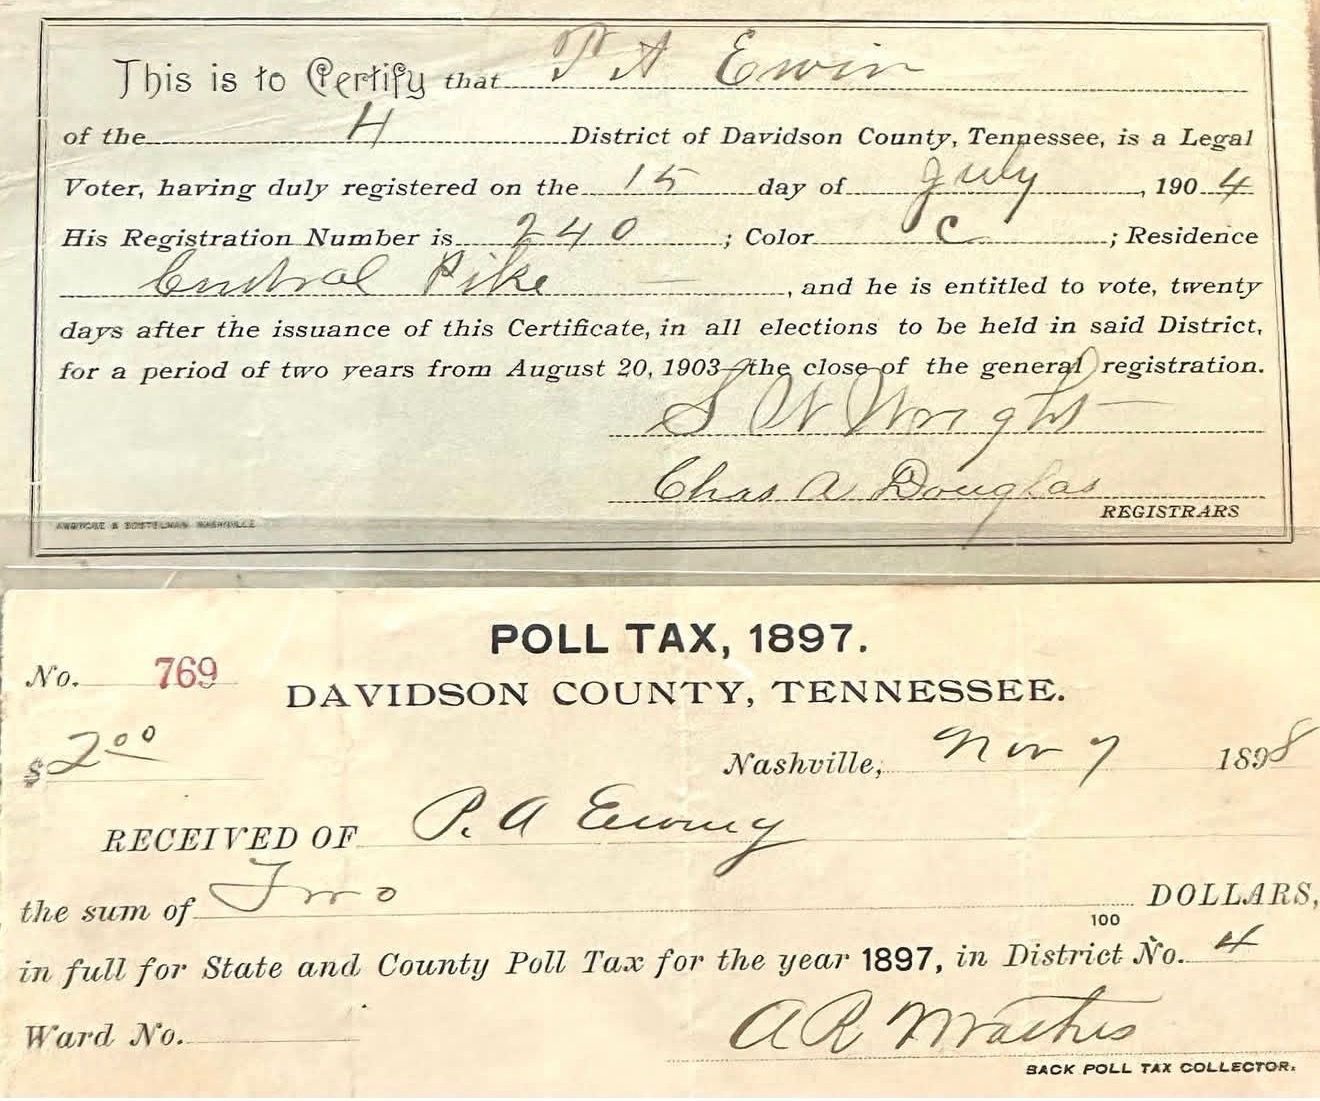 This is to Certify that P A Ewin
of the 4 District of Davidson County, Tennessee, is a Legal
Voter, having duly registered on the 15 day of July, 1904
His Registration Number is 240; Color C; Residence
Central Pike, and he is entitled to vote, twenty
days after the issuance of this Certificate, in all elections to be held in said District,
for a period of two years from August 20, 1903—the close of the general registration.
S W Wright
Chas A Douglas
REGISTRARS
AMBROSE & BOSTELMAN NASHVILLE
POLL TAX, 1897.
No. 769
DAVIDSON COUNTY, TENNESSEE.
$2 00
Nashville, Nov 7 1898
RECEIVED OF P. A Ewing
the sum of Two DOLLARS,
100
in full for State and County Poll Tax for the year 1897, in District No. 4
Ward No.
A R Mathis
BACK POLL TAX COLLECTOR.